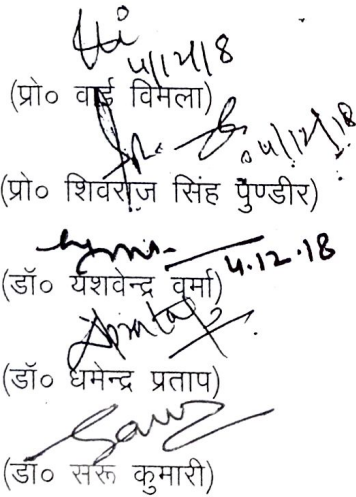 4/12/18
(प्रो० वाई विमला)
04/12/18
(प्रो० शिवराज सिंह पुण्डीर)
4.12.18
(डॉ० यशवेन्द्र वर्मा)
(डॉ० धमेन्द्र प्रताप)
(डॉ० सरू कुमारी)